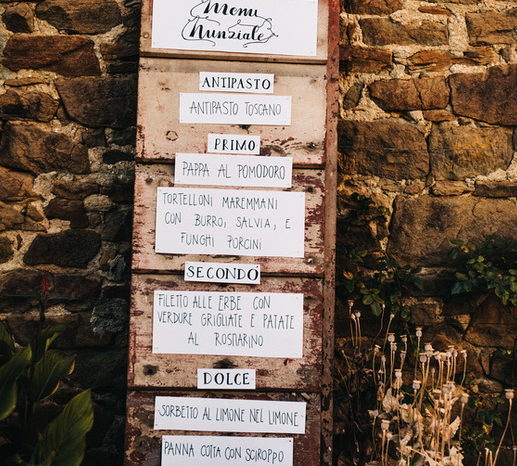 Menu
Nunziale
ANTIPASTO
ANTIPASTO TOSCANO
PRIMO
PAPPA AL POMODORO
TORTELLONI MAREMMANI
CON BURRO, SALVIA, E
FUNGHI PORCINI
SECONDO
FILETTO ALLE ERBE CON
VERDURE GRIGLIATE E PATATE
AL ROSMARINO
DOLCE
SORBETTO AL LIMONE NEL LIMONE
PANNA COTTA CON SCIROPPO